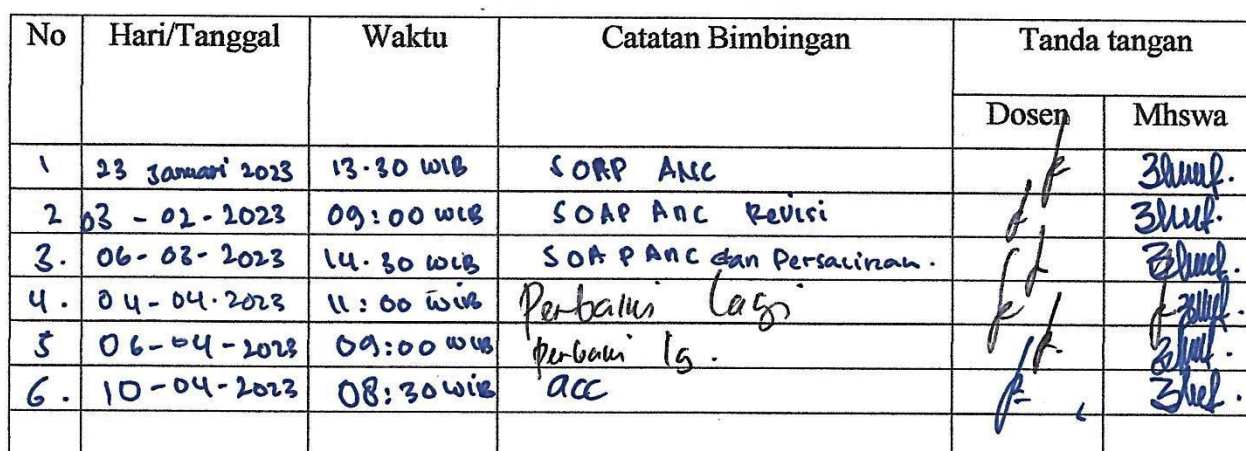 No Hari/Tanggal Waktu Catatan Bimbingan Tanda tangan
Dosen Mhswa
1 23 Januari 2023 13.30 WIB SOAP ANC
2 03 - 02 - 2023 09:00 WIB SOAP ANC Revisi
3. 06 - 03 - 2023 14.30 WIB SOAP ANC dan Persalinan.
4. 04 - 04 - 2023 11:00 WIB Perbaiki lagi
5 06 - 04 - 2023 09:00 WIB perbaiki lg.
6. 10 - 04 - 2023 08:30 WIB acc